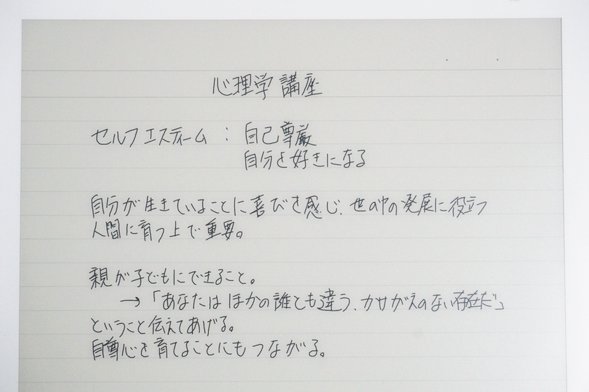 心理学講座
セルフエスティーム : 自己尊厳
自分を好きになる
自分が生きていることに喜びを感じ、世の中の発展に役立つ
人間に育つ上で重要。
親が子どもにできること。
→「あなたはほかの誰とも違う、カケがえのない存在だ」
ということ伝えてあげる。
自尊心を育てることにもつながる。